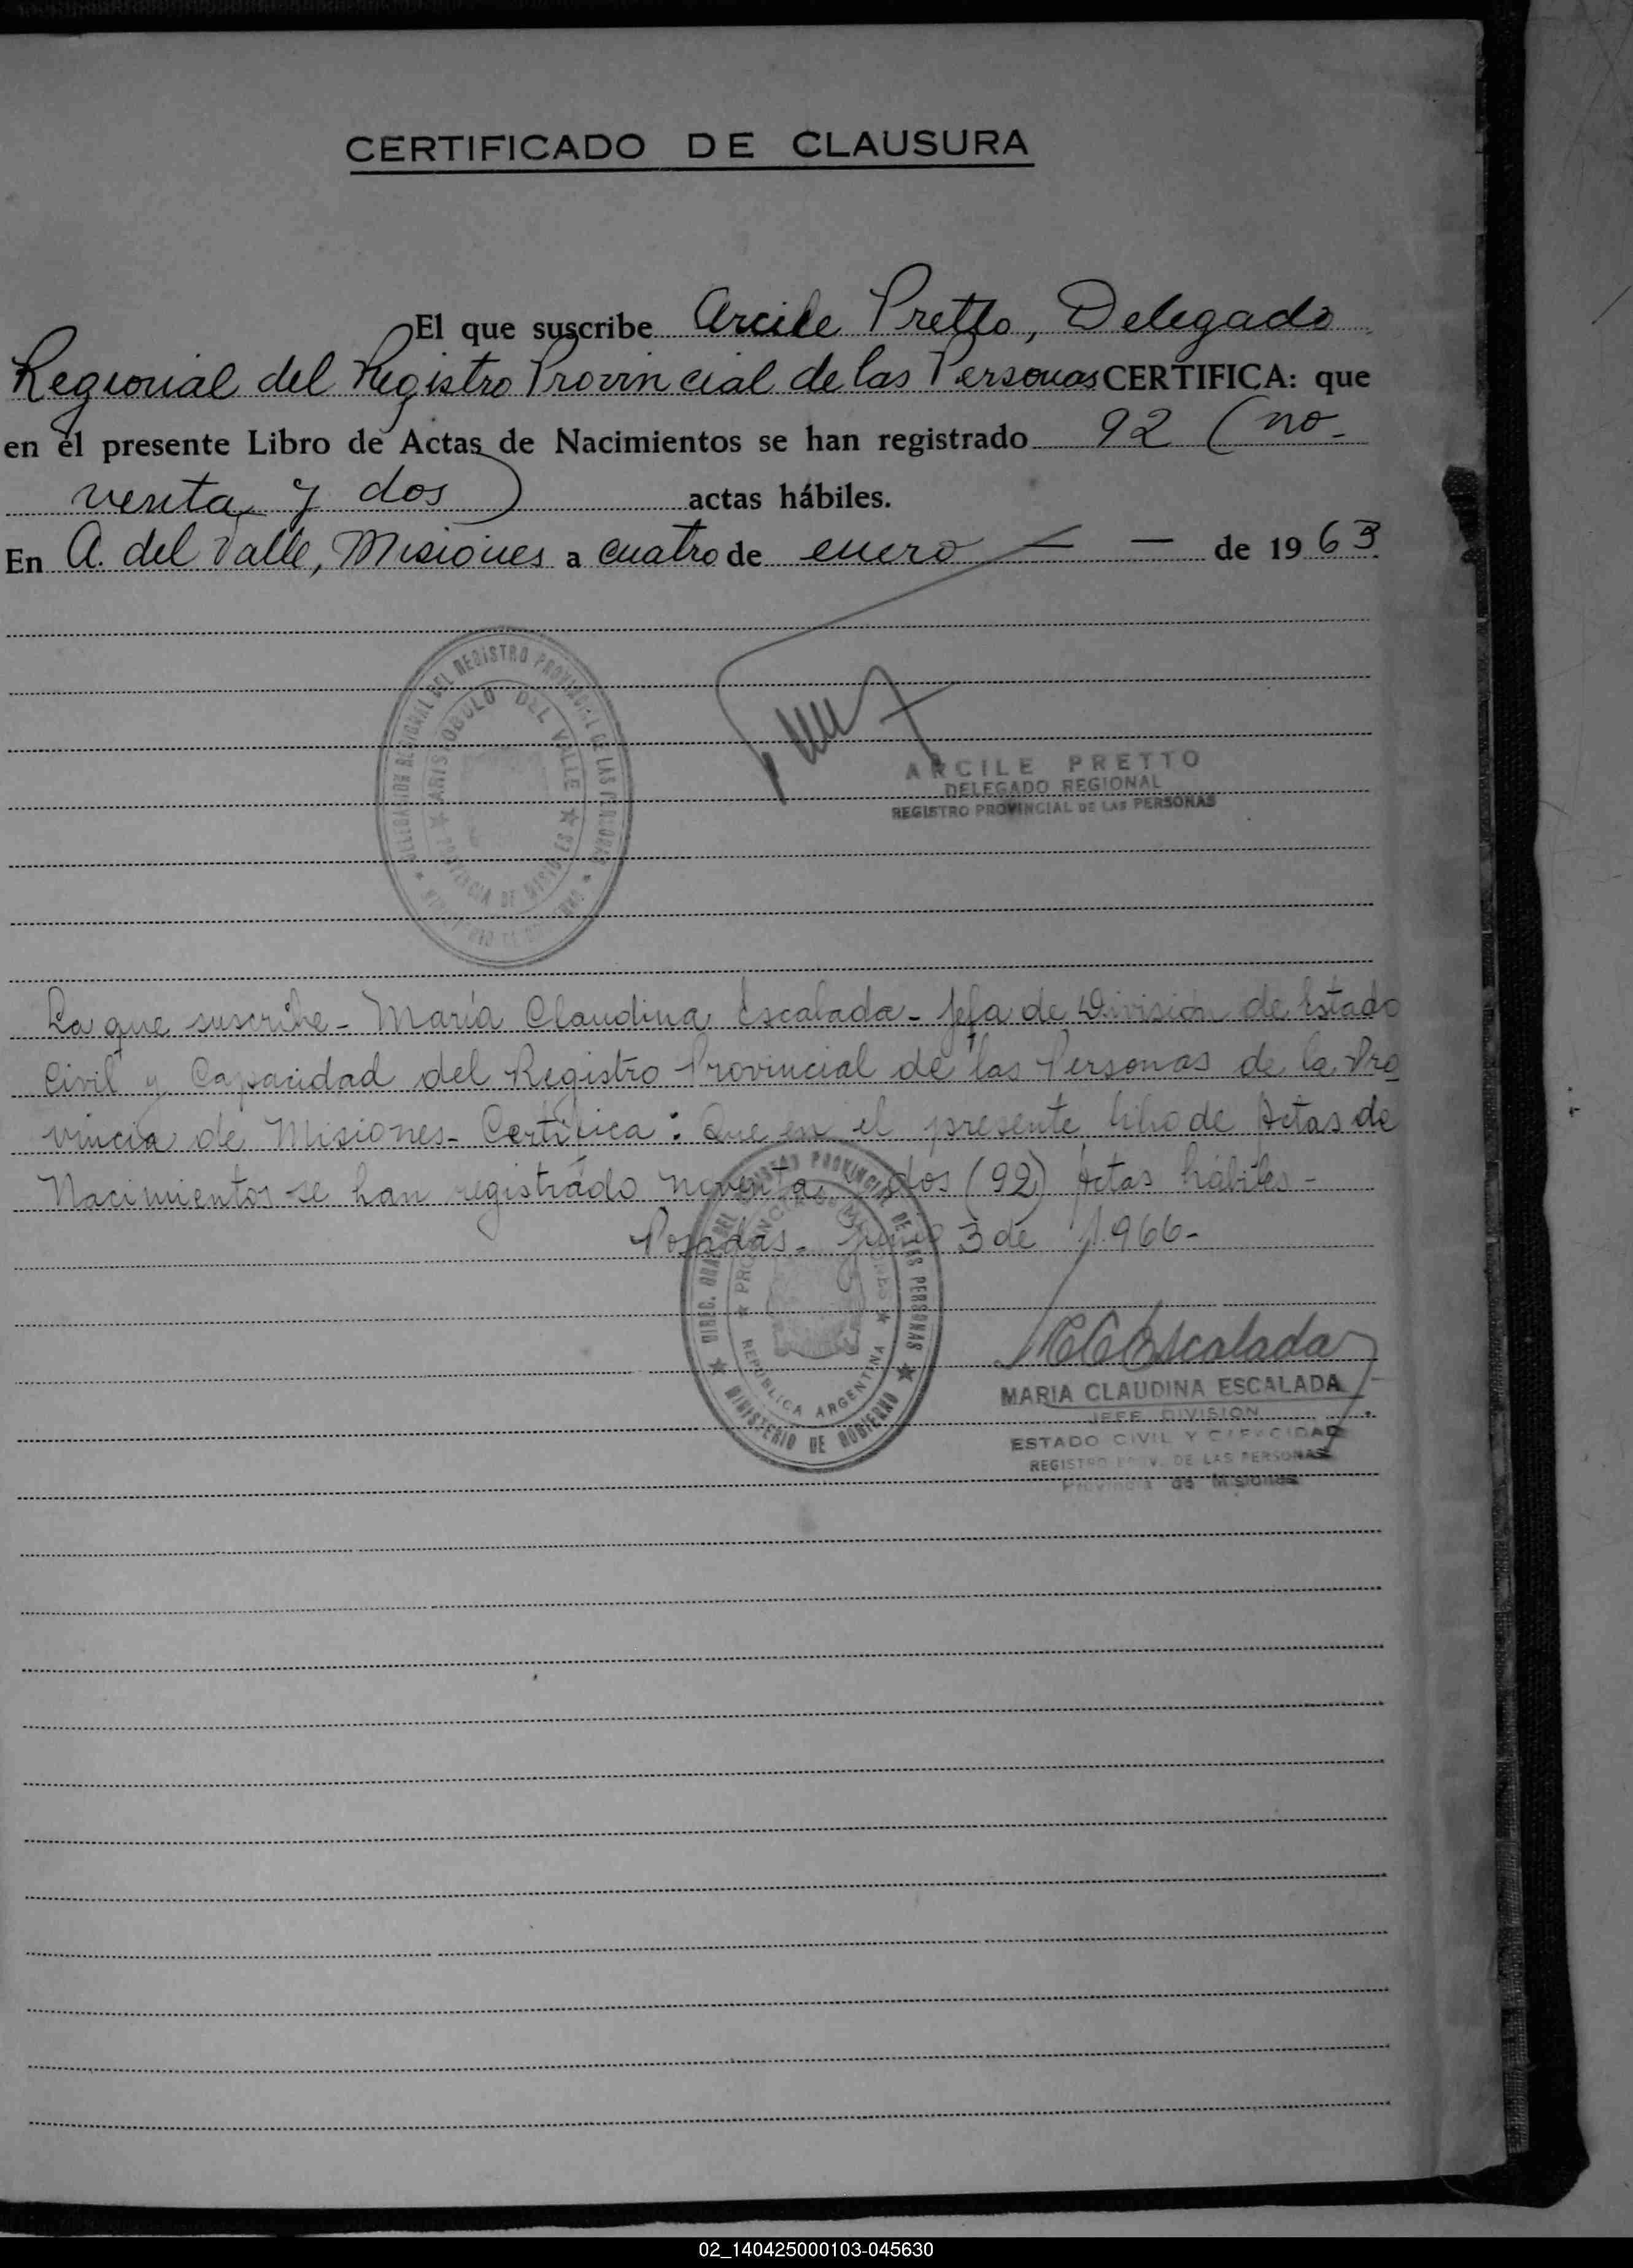 CERTIFICADO DE CLAUSURA
El que suscribe Arcile Pretto, Delegado
Regional del Registro Provincial de las Personas CERTIFICA: que
en el presente Libro de Actas de Nacimientos se han registrado 92 (no-
venta y dos) actas hábiles.
En A. del Valle, Misiones a cuatro de enero — — de 1963.
DELEGACION REGIONAL DEL REGISTRO PROVINCIAL DE LAS PERSONAS
ARISTOBULO DEL VALLE
PROVINCIA DE MISIONES
ARCILE PRETTO
DELEGADO REGIONAL
REGISTRO PROVINCIAL DE LAS PERSONAS
La que suscribe - María Claudina Escalada - Jefa de División de Estado
Civil y Capacidad del Registro Provincial de las Personas de la Pro
vincia de Misiones - Certifica: Que en el presente libro de Actas de
Nacimientos se han registrado noventa y dos (92) Actas hábiles -
Posadas - 3 de 1.966-
DIREC. GRAL. DEL REGISTRO PROVINCIAL DE LAS PERSONAS
PROVINCIA DE MISIONES
REPUBLICA ARGENTINA
MINISTERIO DE GOBIERNO
MCEscalada
MARIA CLAUDINA ESCALADA
JEFE DIVISION
ESTADO CIVIL Y CAPACIDAD
REGISTRO PROV. DE LAS PERSONAS
Provincia de Misiones
02_140425000103-045630